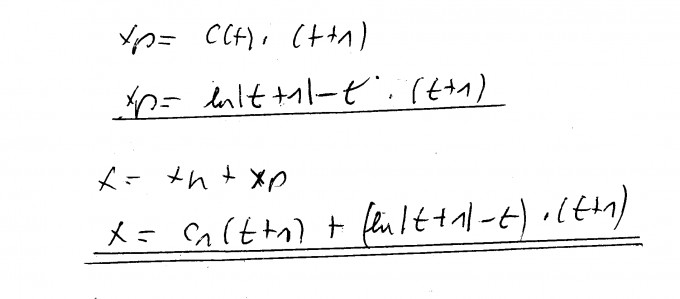 xp = C(t) · (t+1)
xp = ln|t+1|-t · (t+1)
x = xh + xp
x = c1(t+1) + (ln|t+1|-t) · (t+1)